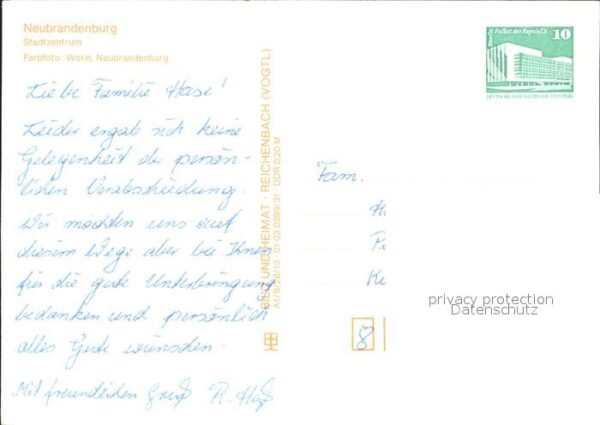 Neubrandenburg
Stadtzentrum
Farbfoto: Wotin, Neubrandenburg
Liebe Familie Hase!
Leider ergab sich keine
Gelegenheit der persön-
lichen Verabschiedung.
Wir möchten uns auf
diesem Wege aber bei Ihnen
für die gute Unterbringung
bedanken und persönlich
alles Gute wünschen.
Mit freundlichen Gruß R.
BILD UND HEIMAT · REICHENBACH (VOGTL)
DDR 0,20 M
Berlin Palast der Republik
10
DEUTSCHE DEMOKRATISCHE REPUBLIK
Fam.
H
P
8
privacy protection
Datenschutz